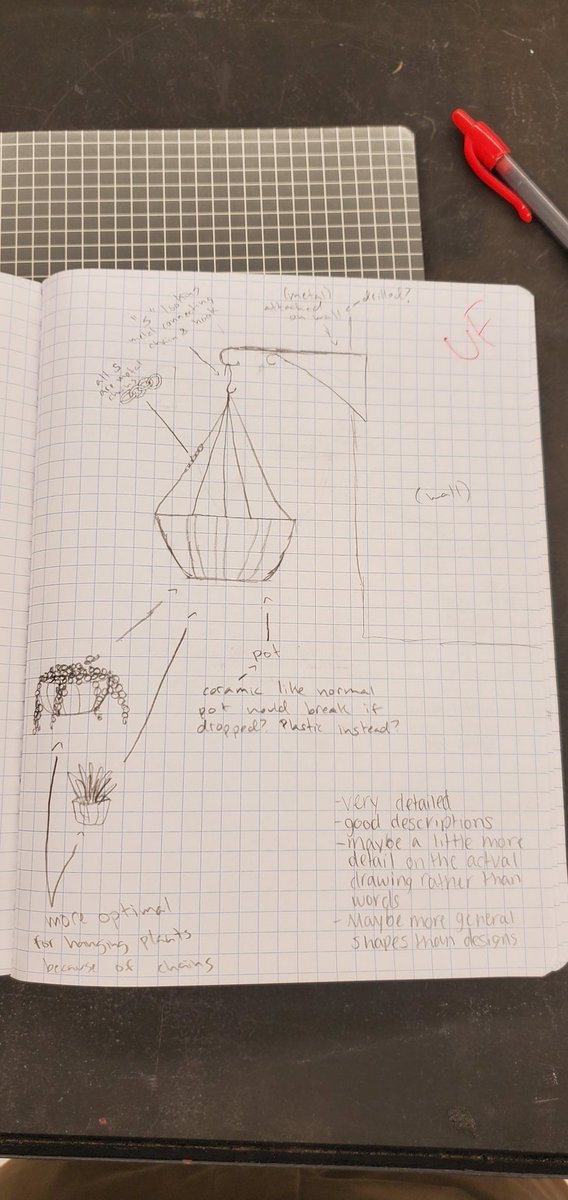 "S" looking
metal connecting
chain & hook
(metal)
attached
on wall
drilled?
UF
all 5
are metal
chains
(wall)
pot
ceramic like normal
pot would break if
dropped? Plastic instead?
-very detailed
-good descriptions
-maybe a little more
detail on the actual
drawing rather than
words
- Maybe more general
shapes than designs
more optimal
for hanging plants
because of chains